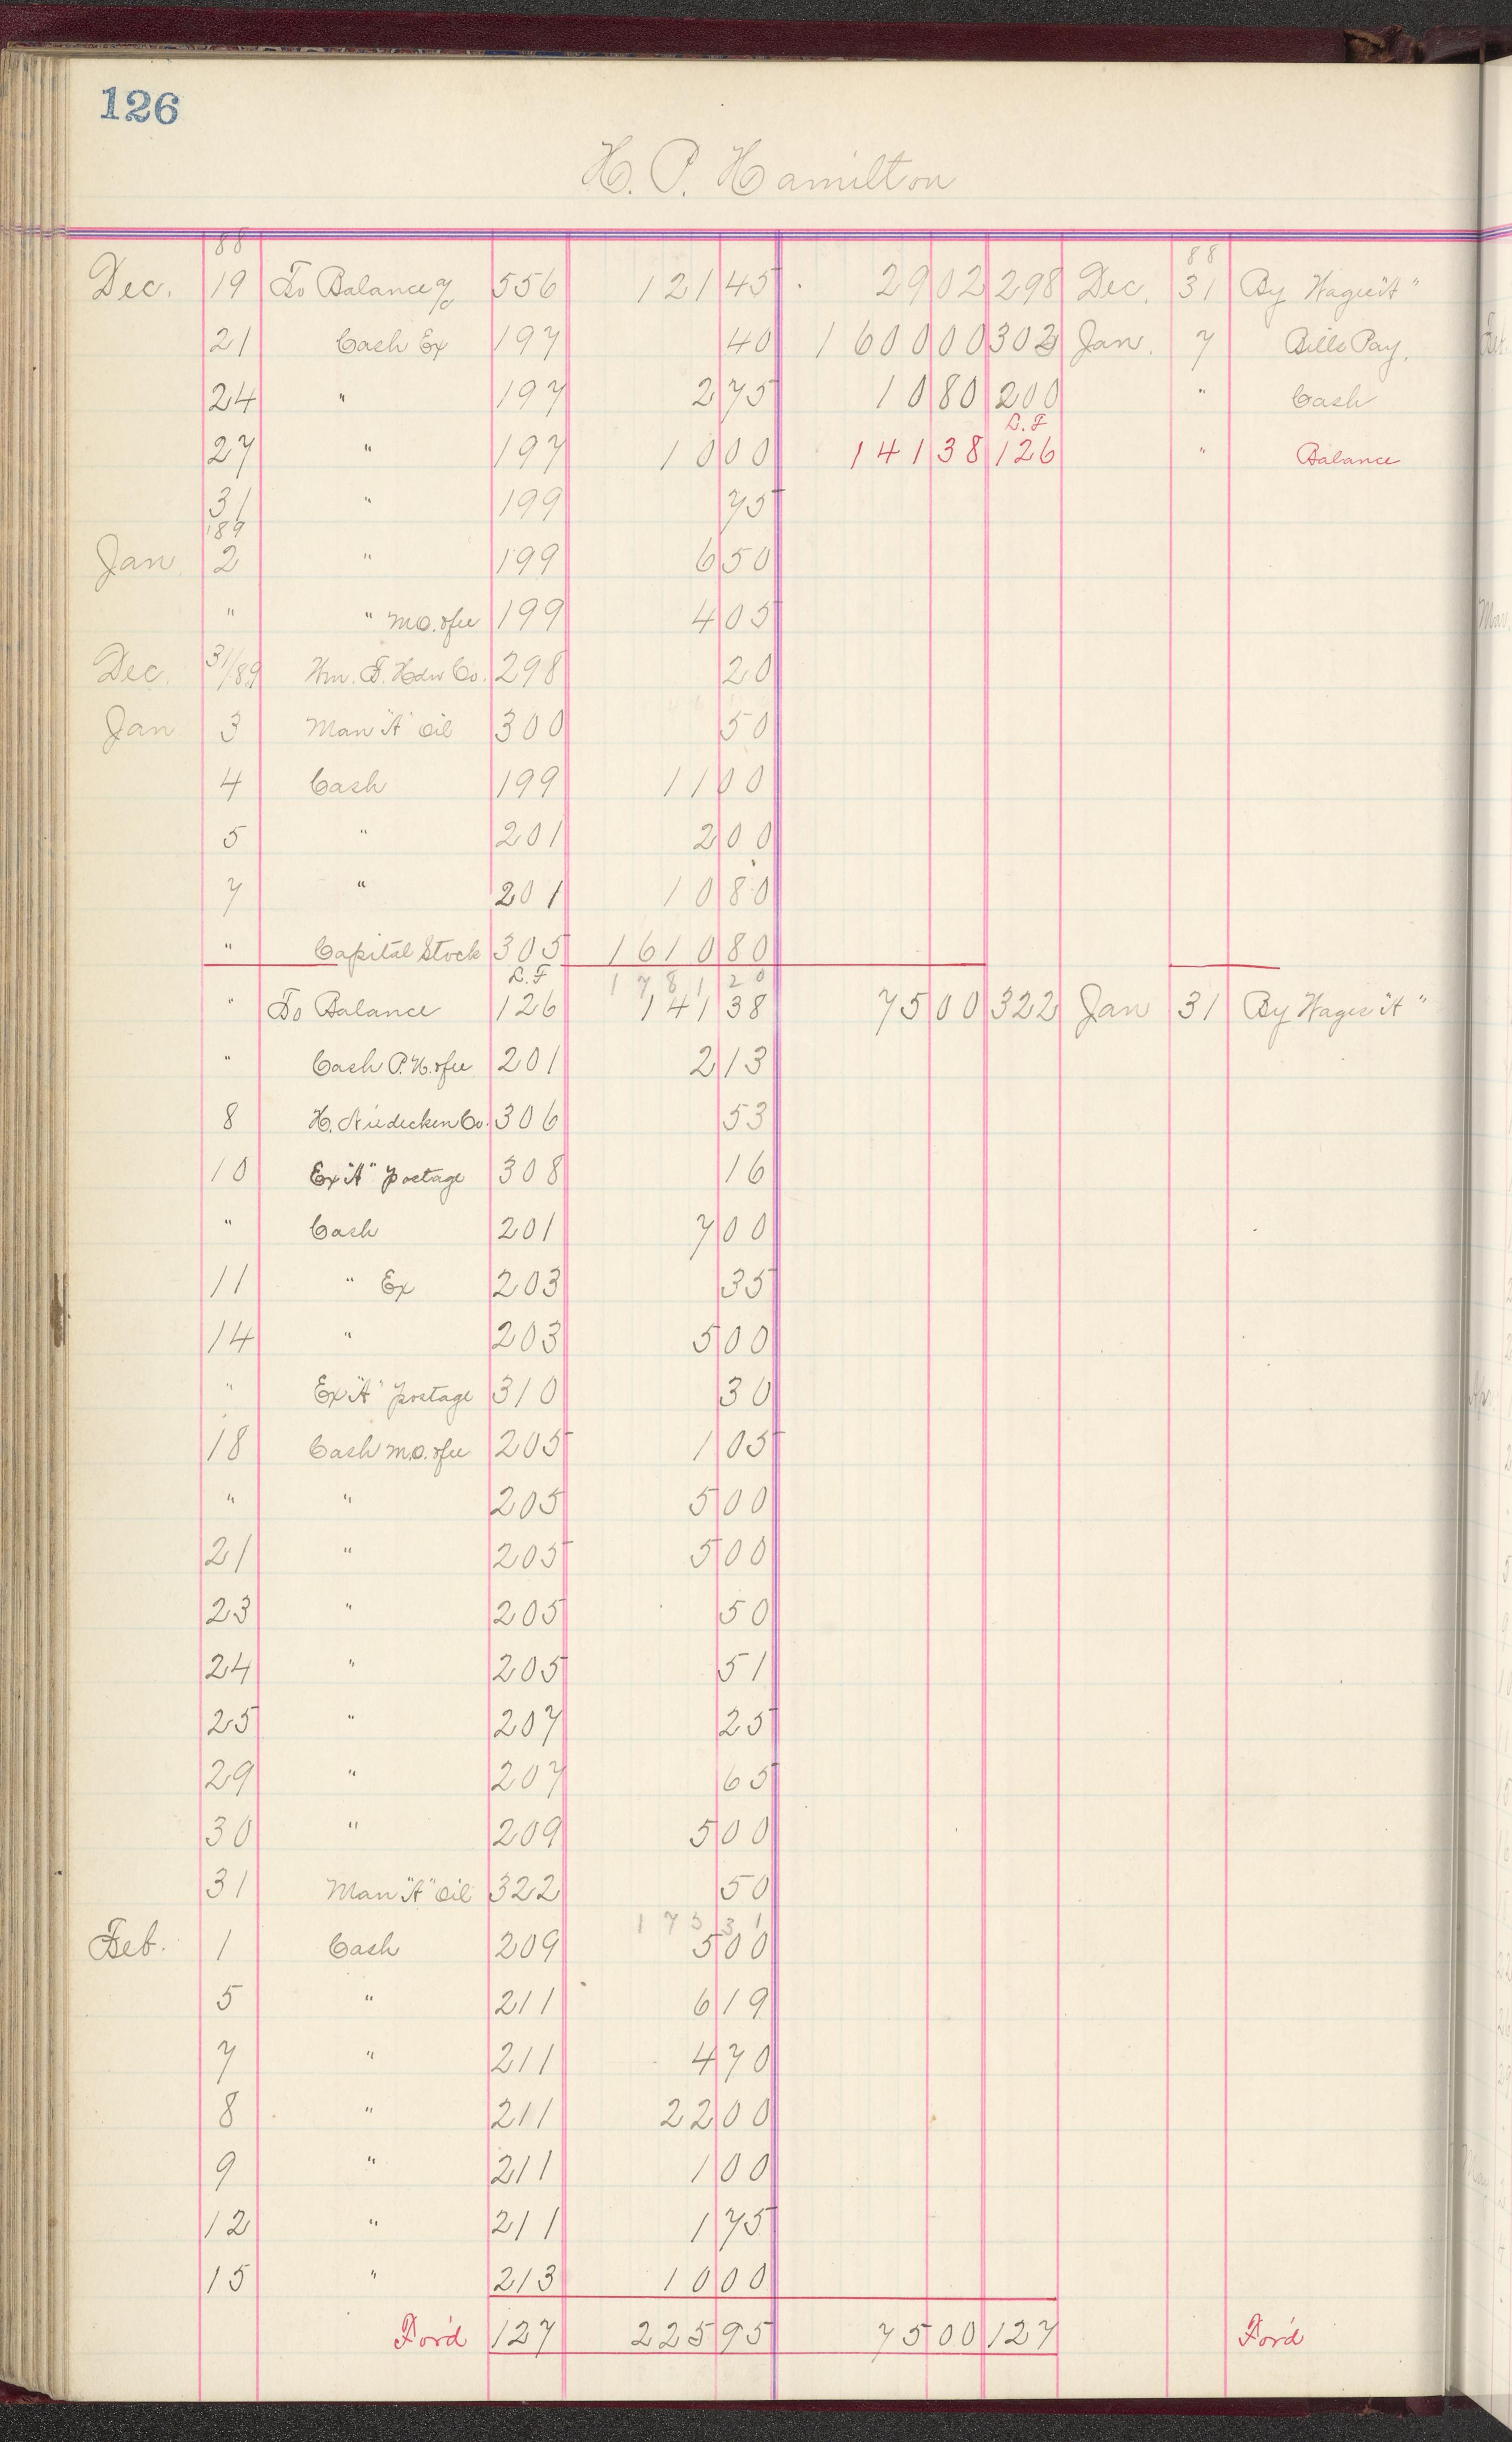 126
H. P. Hamilton
88 88
Dec. 19 To Balance % 556 121 45 29 02 298 Dec. 31 By Wages "A"
21 Cash Ex 197 40 1600 00 302 Jan. 7 Bills Pay.
24 " 197 2 75 10 80 200 " Cash
L.F
27 " 197 10 00 141 38 126 " Balance
31 " 199 75
189
Jan. 2 " 199 6 50
" " m.o. & fee 199 4 05
Dec. 31/89 Wm. F. Hdw Co. 298 20
Jan 3 Man "A" Oil 300 50
4 Cash 199 11 00
5 " 201 2 00
7 " 201 10 80
" Capital Stock 305 1610 80
L.F 1781 20
" To Balance 126 141 38 75 00 322 Jan 31 By Wages "A"
" Cash P.N. & fee 201 2 13
8 H. Niedecken Co. 306 53
10 Ex "A" Postage 308 16
" Cash 201 7 00
11 " Ex 203 35
14 " 203 5 00
" Ex "A" Postage 310 30
18 Cash m.o. & fee 205 1 05
" " 205 5 00
21 " 205 5 00
23 " 205 50
24 " 205 51
25 " 207 25
29 " 207 65
30 " 209 5 00
31 Man "A" Oil 322 50
175 31
Feb. 1 Cash 209 5 00
5 " 211 6 19
7 " 211 4 70
8 " 211 22 00
9 " 211 1 00
12 " 211 1 75
15 " 213 10 00
For'd 127 225 95 75 00 127 For'd